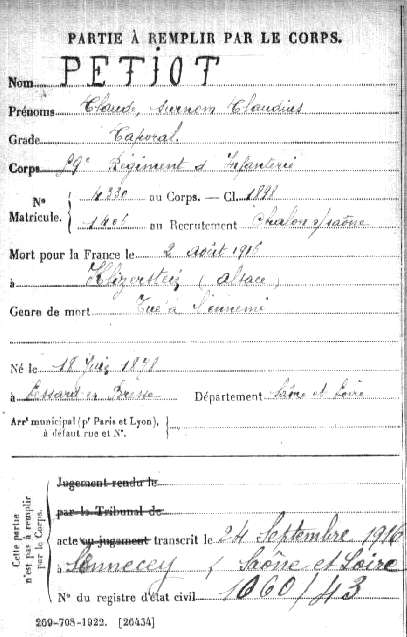 PARTIE À REMPLIR PAR LE CORPS.
Nom PETIOT
Prénoms Claude, surnom Claudius
Grade Caporal.
Corps Régiment d'Infanterie
Nº Matricule. 4330 au Corps. — Cl. 1898
1406 au Recrutement Chalon s/Saône
Mort pour la France le 2 août 1916
à (Alsace)
Genre de mort Tué à l'ennemi
Né le 18 Juin 1878
à Lessard en Bresse Département Saône et Loire
Arrt municipal (pr Paris et Lyon),
à défaut rue et Nº.
Cette partie
n'est pas à remplir
par le Corps.
Jugement rendu le
par le Tribunal de
acte ou jugement transcrit le 24 Septembre 1916
à Sennecey, Saône et Loire
Nº du registre d'état civil 1060/43
269-708-1922. [26434]